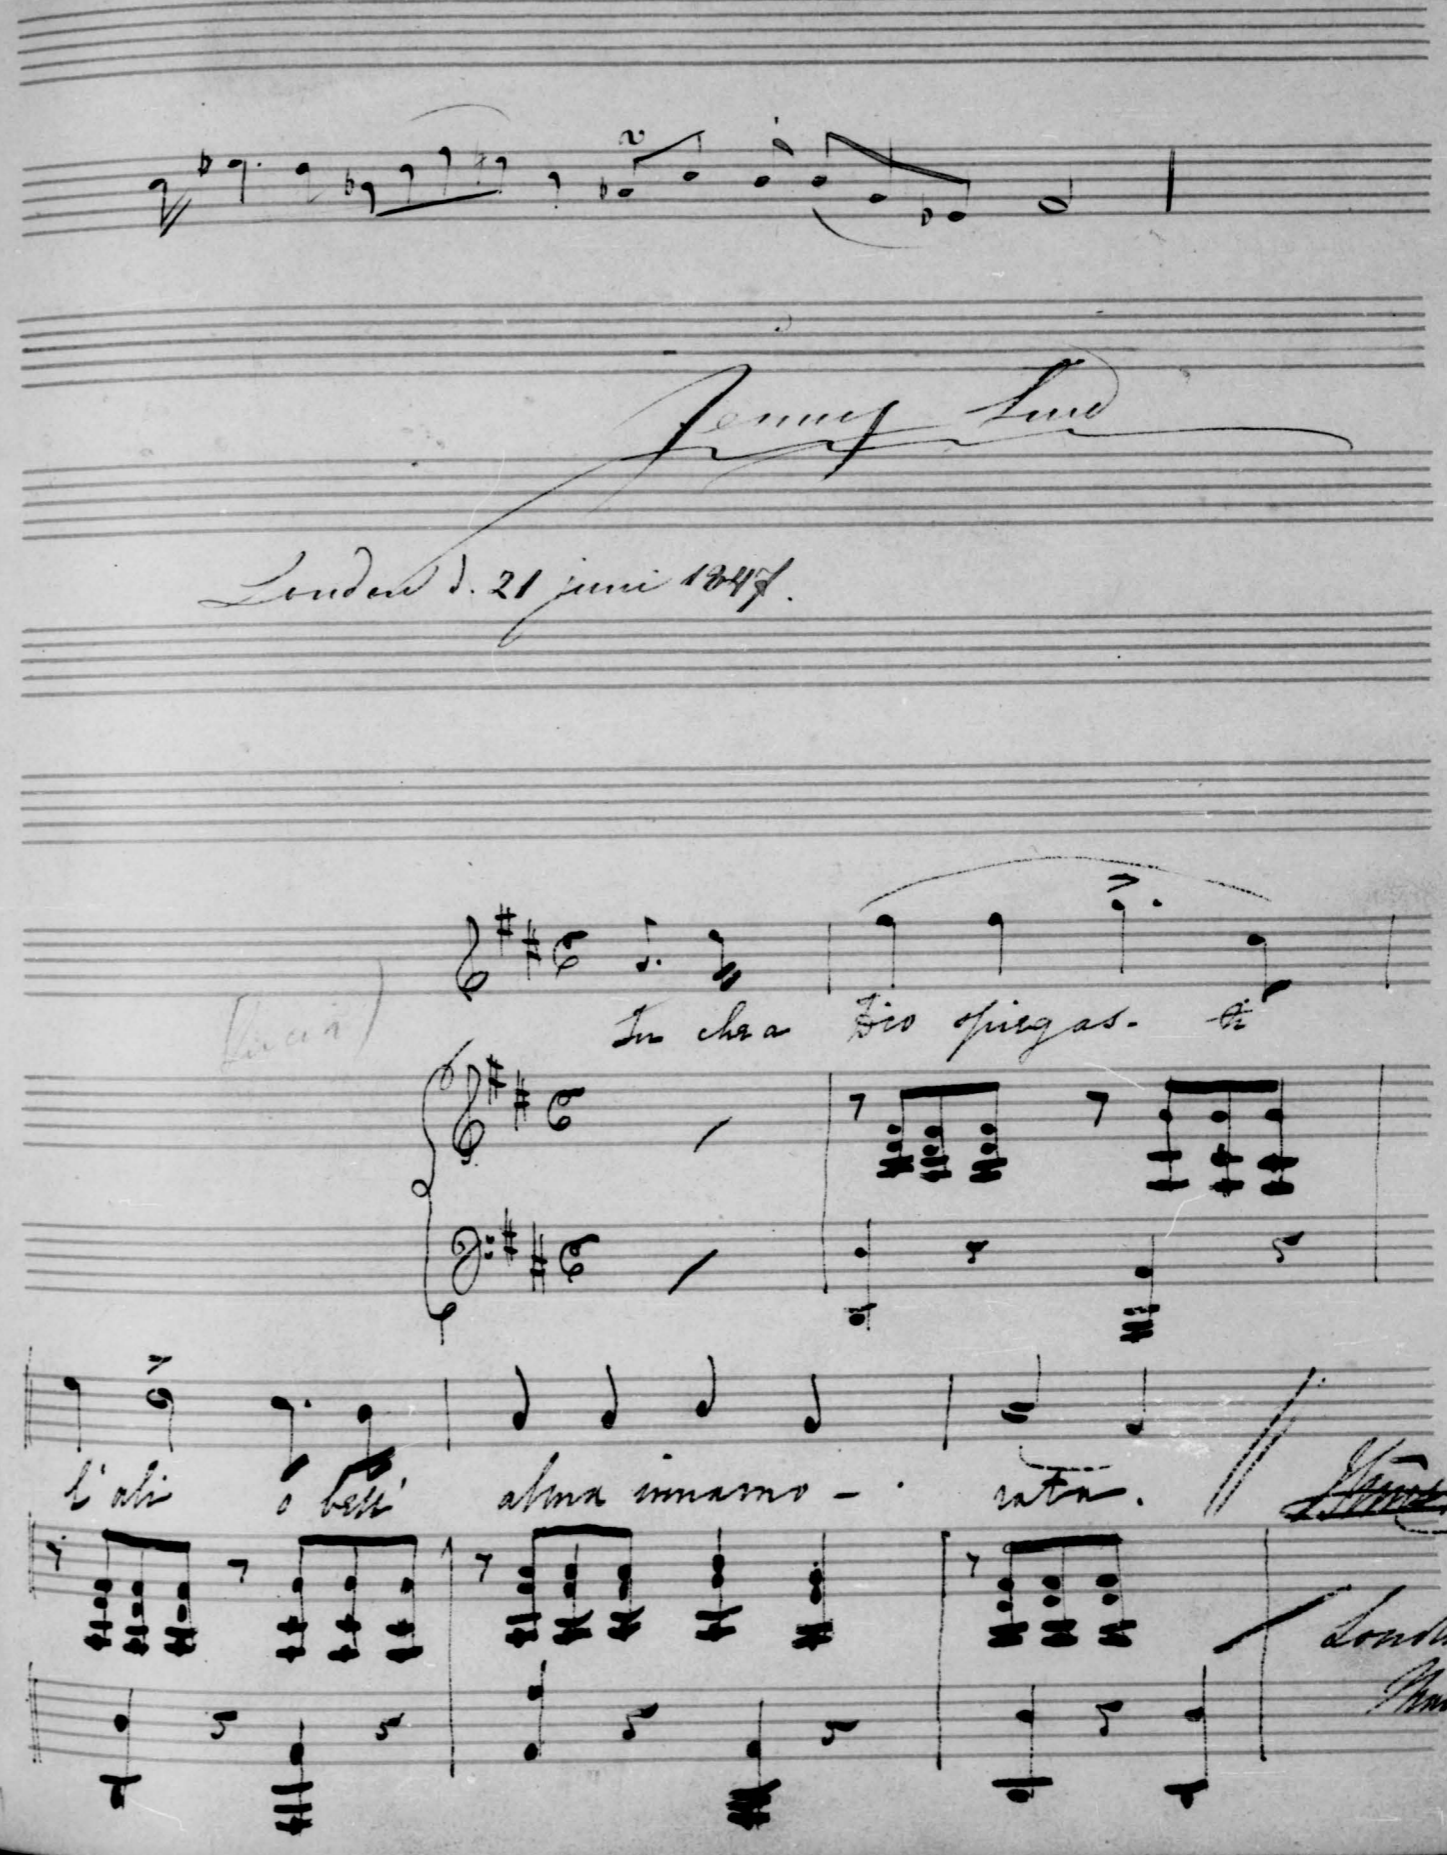 Jenny Lind
London d. 21 juni 1847.
(Lucia)
Tu che a Dio spiegas- ti
l'ali o bell' alma innamo - rata.